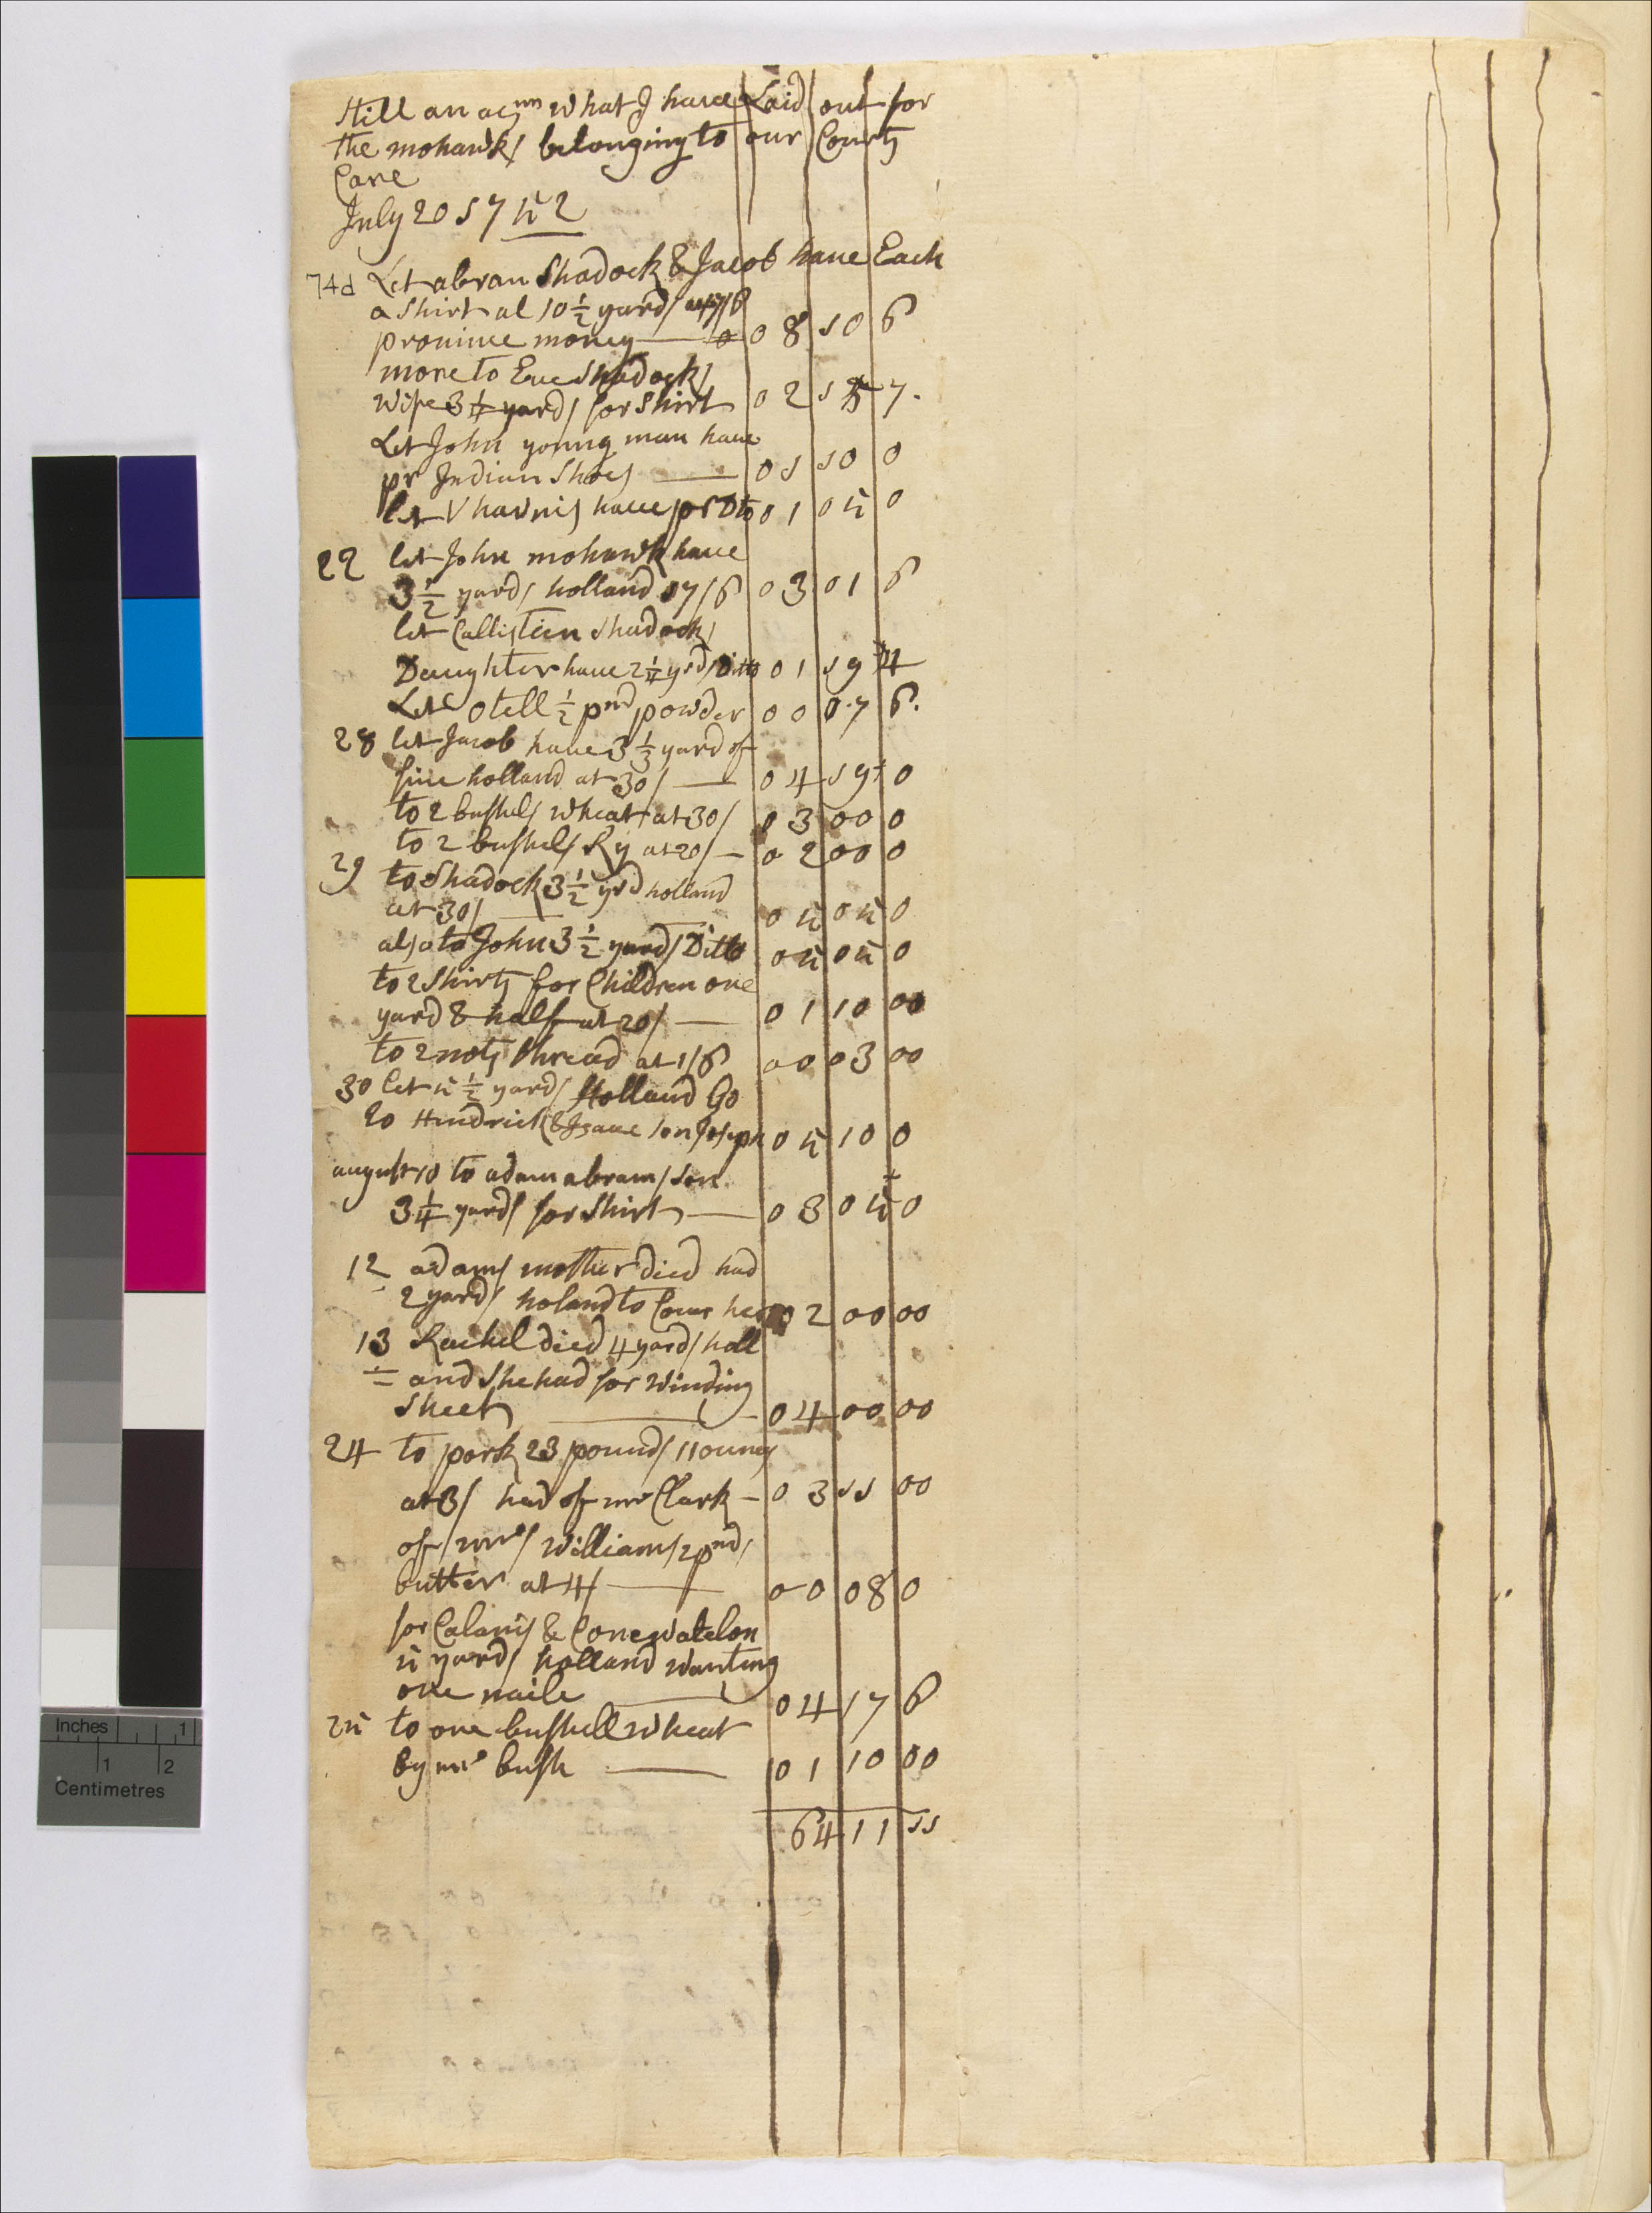 Still an acnn what J have Laid out for
the mohawks belonging to our Courts
Care
July 20 1752
74d Let abran Shadock & Jacob have Each
a Shirt al 10 1/2 yards
province money — 0 08 10 6
more to Eue Shadocks
wife 3 1/4 yards for Shirt 02 1 7.
Let John young man have
pr Jndian Shoes — 01 10 0
let have pr Dto 01 05 0
22 let John mohawk have
3 1/2 yards holland 17/6 03 01 6
let Callisteen Shadocks
Daughter have 2 1/4 yrds Ditto 01 19 4
Let Otell 1/2 pnd powder 00 0.7 6.
28 let Jacob have 3 1/3 yard of
fine holland at 30/ — 04 19 0
to 2 bushels wheat at 30/ 03 00 0
to 2 bushels Ry at 20/ — 02 00 0
29 to Shadock 3 1/2 yrd holland
at 30/ — 05 05 0
also to John 3 1/2 yards Ditto 05 05 0
to 2 Shirts for Children one
yard & half at 20/ — 01 10 00
to 2 nots thread at 1/6 00 03 00
30 let 5 1/2 yards Holland Go
to Hendrick & Jsaac son Joseph 05 10 0
august 10 to adam abrams son
3 1/4 yards for Shirt — 03 05 0
12 adams mother died had
2 yards holand to Couer her 02 00 00
13 Rachel died 4 yards holl
and She had for winding
Sheet — 04 00 00
24 to pork 23 pounds 11 ounces
at 3/ had of mr Clark — 03 11 00
of mrs williams 2 pnds
butter at 4/ — 00 08 0
for Calanis & Conewatelon
5 yards holland wanting
one naile — 04 17 6
25 to one bushell wheat
by mrs bush — 01 10 00
64 11 11
Inches 1
1 2
Centimetres